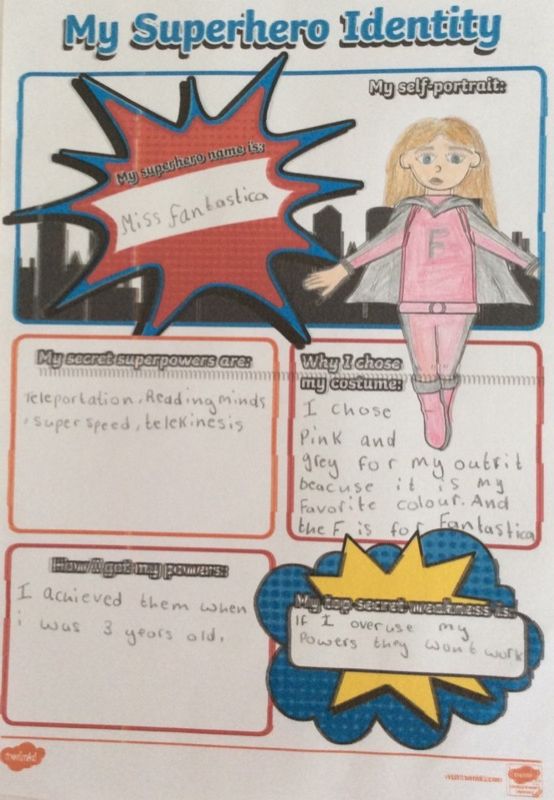 My Superhero Identity
My self-portrait:
My superhero name is:
Miss fantastica
F
My secret superpowers are:
Teleportation, Reading minds
, super speed, telekinesis
Why I chose
my costume:
I chose
Pink and
grey for my outfit
beacuse it is my
favorite colour. And
the F is for Fantastica
How I got my powers:
I achieved them when
i was 3 years old.
My top secret weakness is:
If I overuse my
Powers they wont work
twinkl